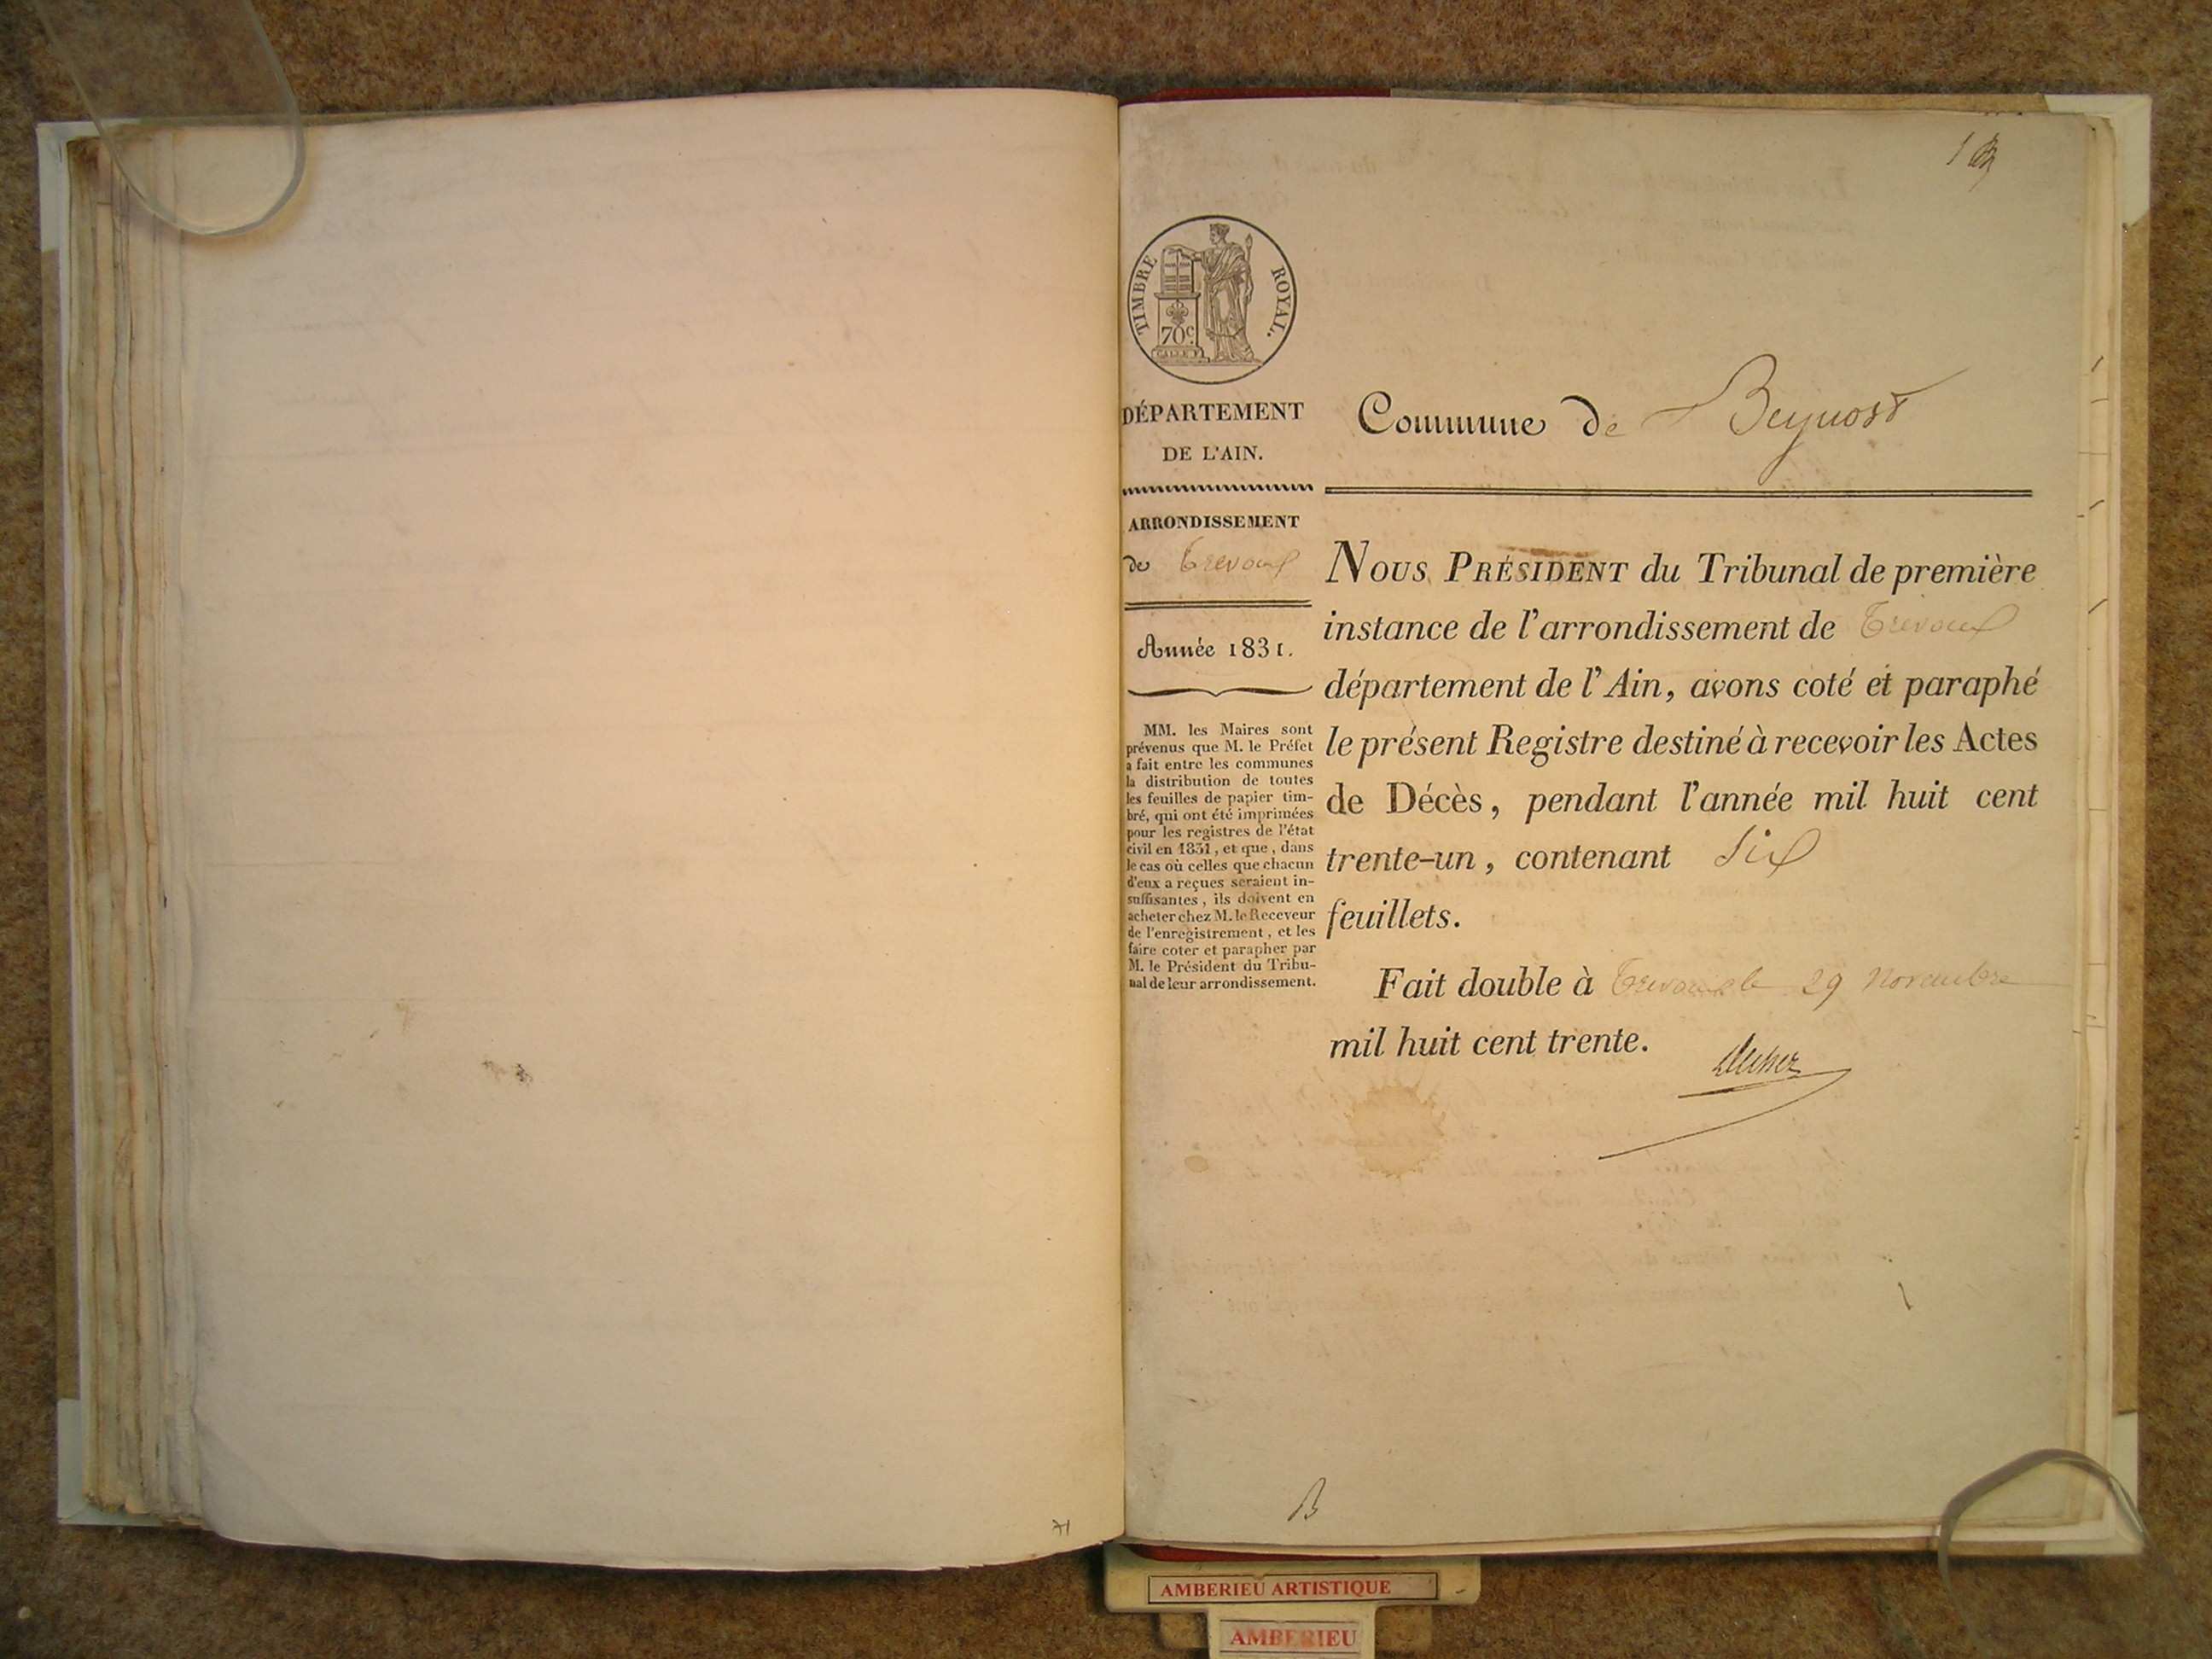 1
TIMBRE ROYAL.
70c.
DÉPARTEMENT
DE L'AIN.
Commune de Beynost
ARRONDISSEMENT
de Trevoux
Année 1831.
MM. les Maires sont
prévenus que M. le Préfet
a fait entre les communes
la distribution de toutes
les feuilles de papier tim-
bré, qui ont été imprimées
pour les registres de l'état
civil en 1831, et que, dans
le cas où celles que chacun
d'eux a reçues seraient in-
suffisantes, ils doivent en
acheter chez M. le Receveur
de l'enregistrement, et les
faire coter et parapher par
M. le Président du Tribu-
nal de leur arrondissement.
NOUS PRÉSIDENT du Tribunal de première
instance de l'arrondissement de Trevoux
département de l'Ain, avons coté et paraphé
le présent Registre destiné à recevoir les Actes
de Décès, pendant l'année mil huit cent
trente-un, contenant Six
feuillets.
Fait double à Trevoux le 29 Novembre
mil huit cent trente.
B
71
AMBERIEU ARTISTIQUE
AMBERIEU